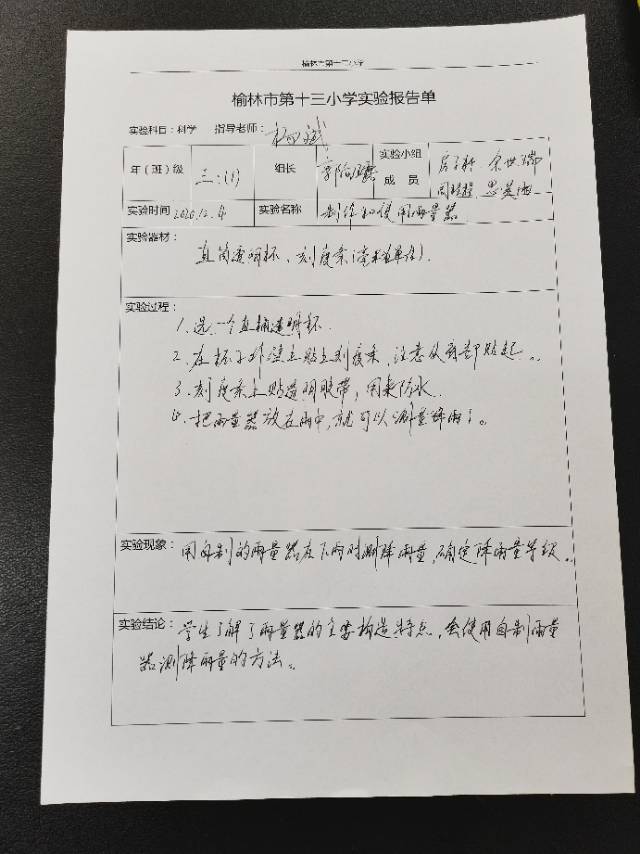 榆林市第十三小学
榆林市第十三小学实验报告单
实验科目：科学 指导老师：
年（班）级 三：(1) 组长 实验小组成员
实验时间 2020.12. 实验名称 制作和使用雨量器
实验器材：
直筒透明杯、刻度条(毫米为单位).
实验过程：
1. 选一个直桶透明杯.
2. 在杯子外壁上贴上刻度条，注意从底部贴起。
3. 刻度条上贴透明胶带，用来防水.
4. 把雨量器放在雨中，就可以测量降雨了。
实验现象： 用自制的雨量器在下雨时测降雨量，确定降雨量等级。
实验结论： 学生了解了雨量器的主要构造特点，会使用自制雨量
器测降雨量的方法。